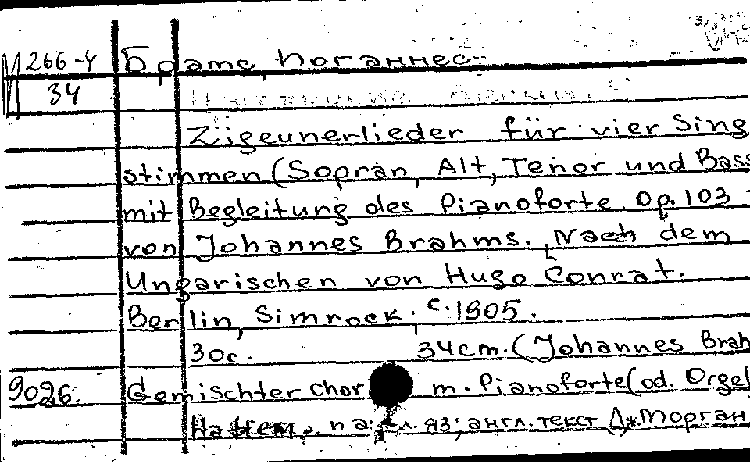 M 266-4 Брамс, Иоганнес
34
Zigeunerlieder für vier Sing
stimmen (Sopran, Alt, Tenor und Bass
mit Begleitung des Pianoforte. Op. 103
von Johannes Brahms. Nach dem
Ungarischen von Hugo Conrat.
Berlin, Simrock. c. 1905.
30c. 34cm. (Johannes Brah
9026. Gemischter Chor m. Pianoforte (od. Orgel
На нем. яз; англ. текст Дж. Морган